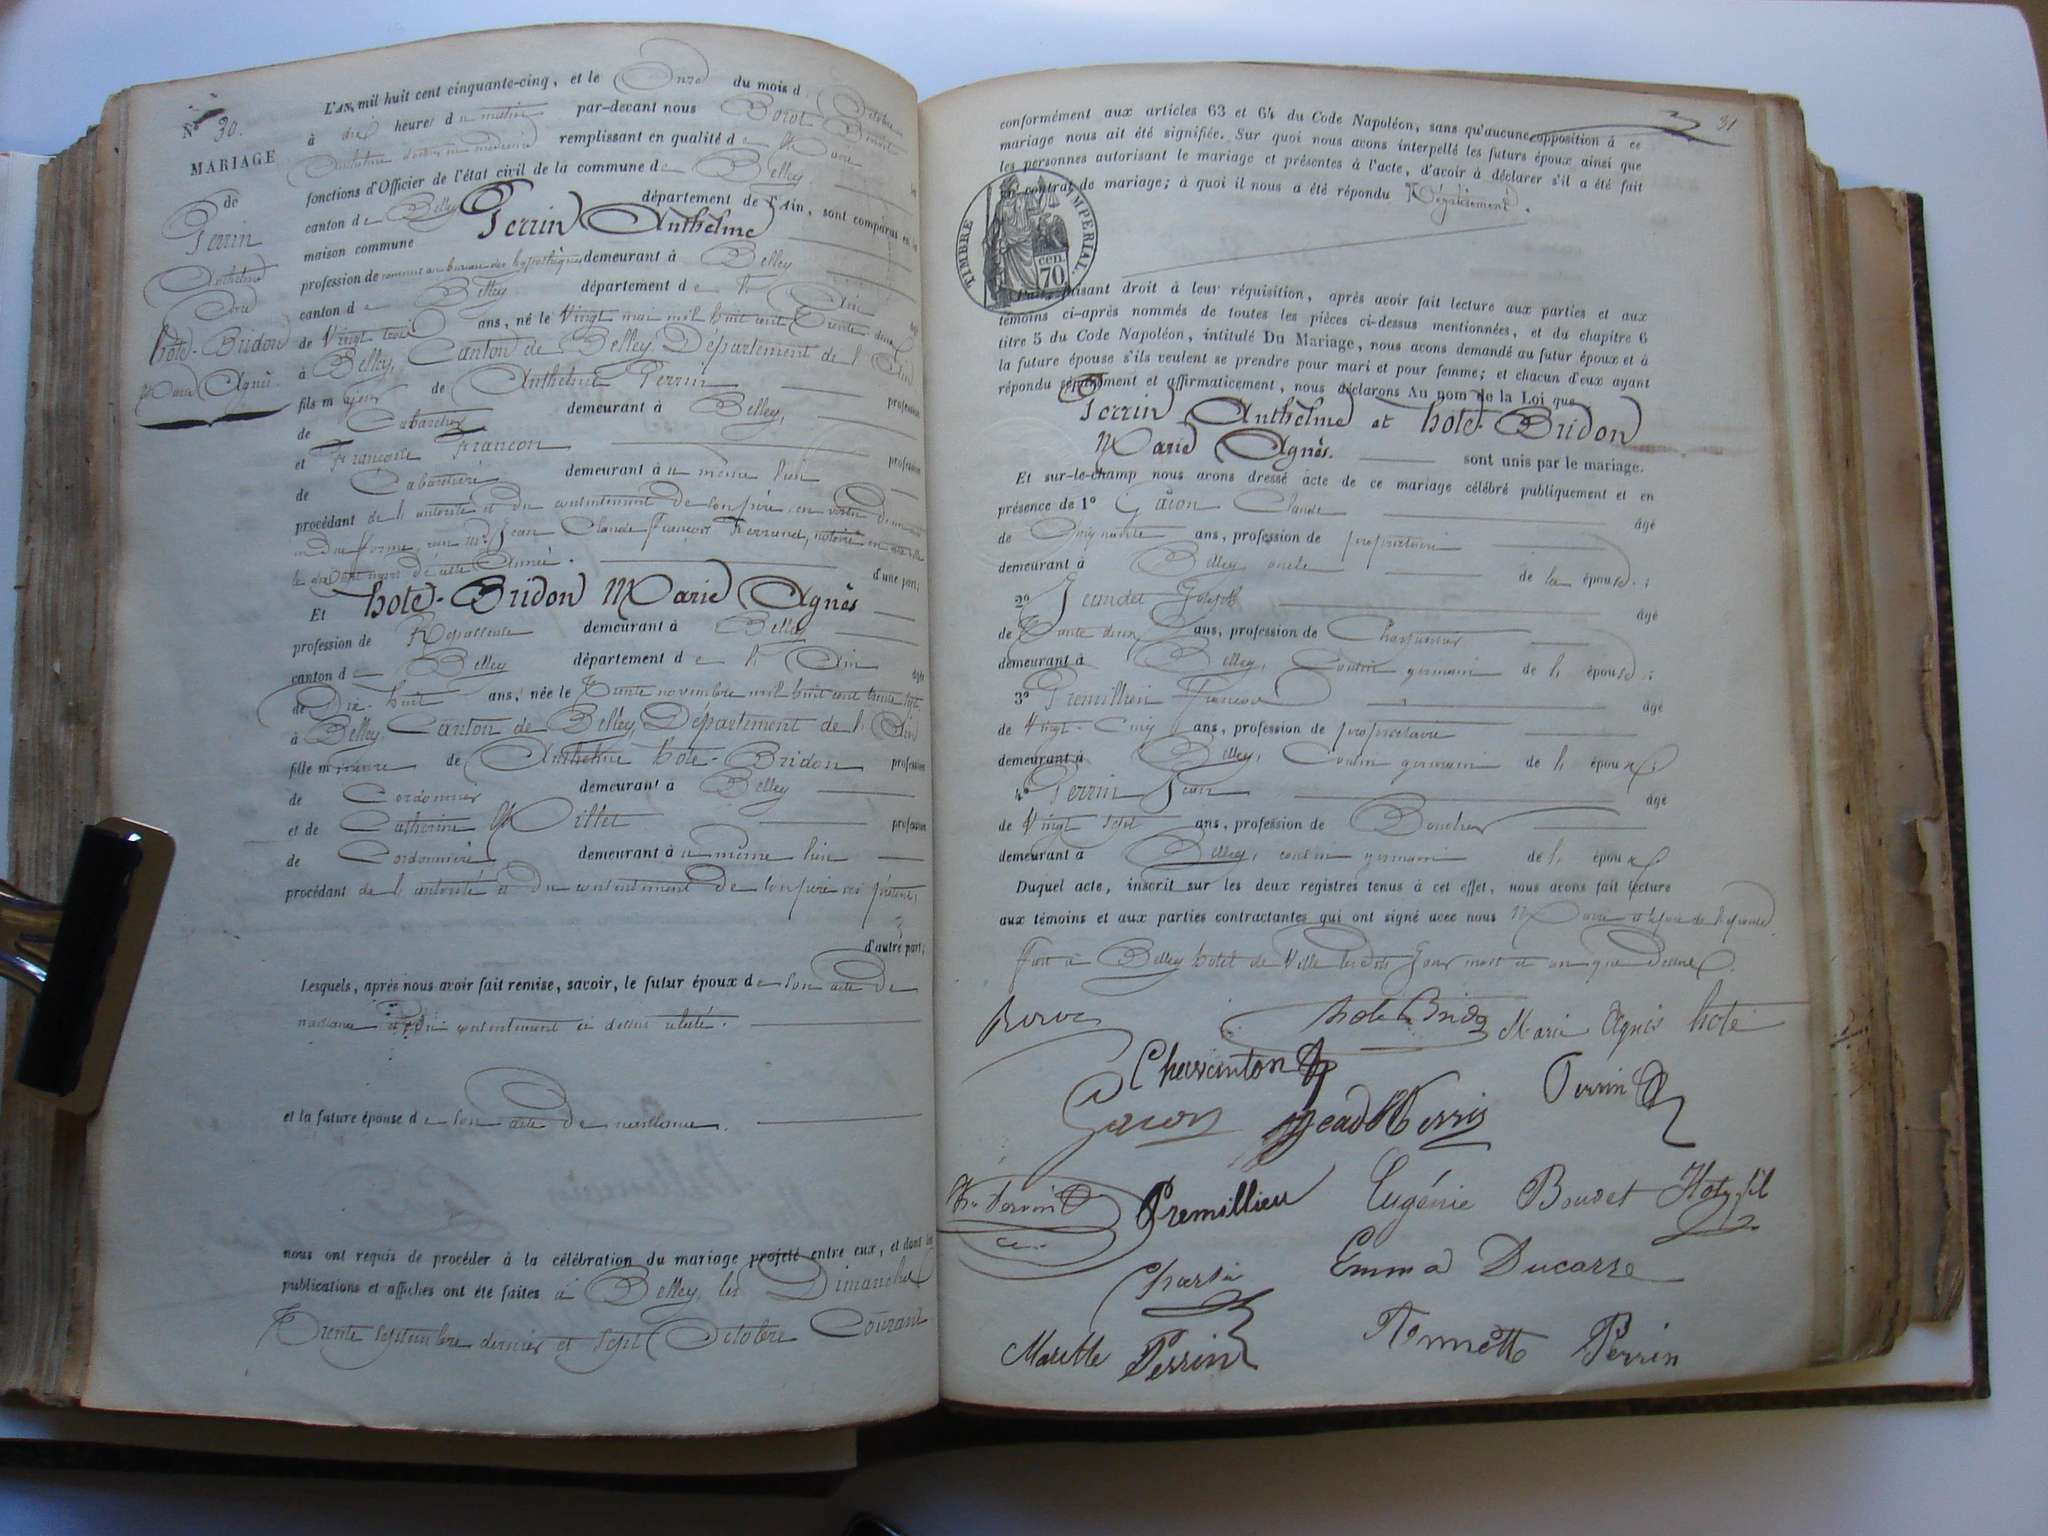 N° 30.
MARIAGE
de
Perrin
Anthelme
hote-Bridon
Marie Agnès
L'AN, mil huit cent cinquante-cinq, et le Onze du mois d' Octobre
à dix heures du matin par-devant nous Borot Benoit
Anthelme docteur en médecine remplissant en qualité de Maire les
fonctions d'Officier de l'état civil de la commune de Belley
canton de Belley département de l'Ain, sont comparus en la
maison commune Perrin Anthelme
profession de commis au bureau des hypothèques demeurant à Belley
canton de Belley département de l' Ain âgé
de Vingt trois ans, né le Vingt mai mil huit cent Trente deux
à Belley, Canton de Belley, Département de l'Ain
fils majeur de Anthelme Perrin profession
de Cabaretier demeurant à Belley,
et Françoise Francon profession
de Cabaretière demeurant au même lieu
procédant de l'autorité et du consentement de son père, en vertu
en due forme, Jean Claude François Ferrand, notaire en
de cette année. d'une part;
Et hote-Bridon Marie Agnès
profession de Repasseuse demeurant à Belley
canton de Belley département de l' Ain âgée
de Dix-huit ans, née le Trente novembre mil huit cent trente sept
à Belley, Canton de Belley, Département de l'Ain
fille mineure de Anthelme hote-Bridon profession
de Cordonnier demeurant à Belley
et de Catherine Millet profession
de Cordonnière, demeurant au même lieu
procédant de l'autorité et du consentement de son père ici présent,
d'autre part;
Lesquels, après nous avoir fait remise, savoir, le futur époux de son acte de
naissance et du consentement ci dessus relaté.
et la future épouse de son acte de naissance.
nous ont requis de procéder à la célébration du mariage projeté entre eux, et dont les
publications et affiches ont été faites à Belley les Dimanches
Trente septembre dernier et sept Octobre Courant
31
conformément aux articles 63 et 64 du Code Napoléon, sans qu'aucune opposition à ce
mariage nous ait été signifiée. Sur quoi nous avons interpellé les futurs époux ainsi que
les personnes autorisant le mariage et présentes à l'acte, d'avoir à déclarer s'il a été fait
un contrat de mariage; à quoi il nous a été répondu Négativement.
TIMBRE IMPERIAL.
70 cen.
Puis, faisant droit à leur réquisition, après avoir fait lecture aux parties et aux
témoins ci-après nommés de toutes les pièces ci-dessus mentionnées, et du chapitre 6
titre 5 du Code Napoléon, intitulé Du Mariage, nous avons demandé au futur époux et à
la future épouse s'ils veulent se prendre pour mari et pour femme; et chacun d'eux ayant
répondu séparément et affirmativement, nous déclarons Au nom de la Loi que
Perrin Anthelme et hote-Bridon
Marie Agnès. sont unis par le mariage.
Et sur-le-champ nous avons dressé acte de ce mariage célébré publiquement et en
présence de 1° Gacon Claude âgé
de Cinquante ans, profession de propriétaire
demeurant à Belley, oncle de la épouse.;
2° Joseph âgé
de Trente deux ans, profession de Charpentier
demeurant à Belley, Cousin germain de l' épouse;
3° Premillieu François âgé
de Vingt-Cinq ans, profession de propriétaire
demeurant à Belley, Cousin germain de l' époux;
4° Perrin Jean âgé
de Vingt sept ans, profession de Boucher
demeurant à Belley, cousin germain de l' époux
Duquel acte, inscrit sur les deux registres tenus à cet effet, nous avons fait lecture
aux témoins et aux parties contractantes qui ont signé avec nous Maire et le père de l'épouse.
Fait à Belley hotel de Ville les dits Jour mois et an que dessus.
hote Bridon Marie Agnès hote
Charvinton
Perrin
Gacon
Premillieu Eugénie Bouvet
Emma Ducarre
Mariette Perrin
Perrin